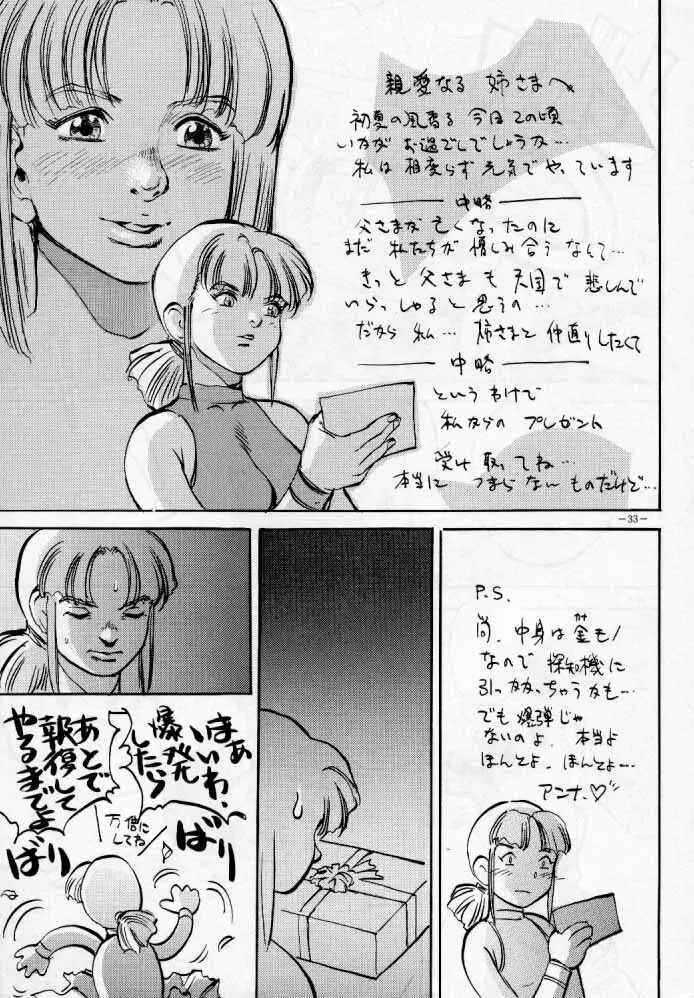 親愛なる 姉さまへ
初夏の風香る 今日この頃
いかが お過ごしでしょうか…
私は 相変らず 元気で やっています
中略
父さまが 亡くなったのに
まだ 私たちが 憎しみ合う なんて…
きっと 父さま も 天国で 悲しんで
いらっしゃると 思うの…
だから 私… 姉さまと 仲直りしたくて
中略
という わけで
私からの プレゼント
受け 取ってね…
本当に つまらない ものだけど…
－33－
P.S.
尚、中身は金モノ
なので 探知機に
引っかかっちゃうかも…
でも 爆弾じゃ
ないのよ 本当よ
ほんとよ、ほんとよ…
アンナ♡
まあ
いいわ、
爆発
したら
あとで
報復して
やるまでよ
万倍に
してね
ばり
ばり